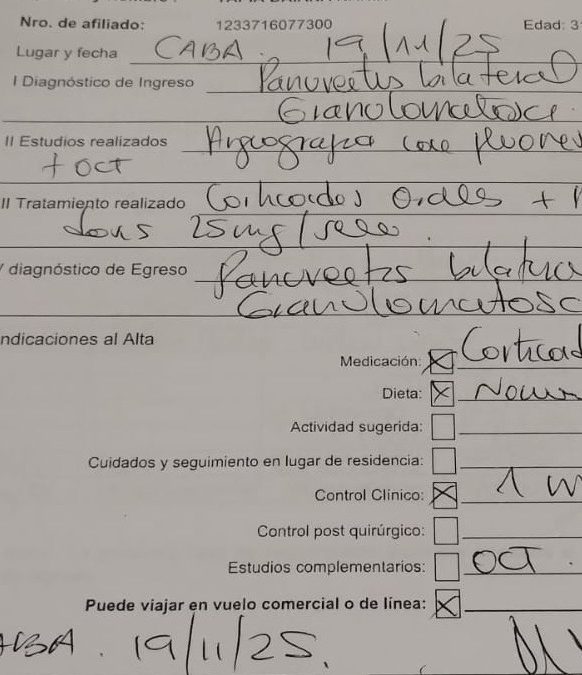 Nro. de afiliado: 1233716077300 Edad: 3
Lugar y fecha CABA. 19/11/25
I Diagnóstico de Ingreso Panuveitis bilateral
Granulomatosa.
II Estudios realizados con fluores
+ OCT
II Tratamiento realizado Corticoides Orales +
dosis 25mg/
diagnóstico de Egreso Panuveitis bilatera
Granulomatosa
ndicaciones al Alta
Medicación: X Corticoid
Dieta: X Norm
Actividad sugerida:
Cuidados y seguimiento en lugar de residencia:
Control Clínico: X 1 m
Control post quirúrgico:
Estudios complementarios: OCT.
Puede viajar en vuelo comercial o de línea: X
ABA. 19/11/25.